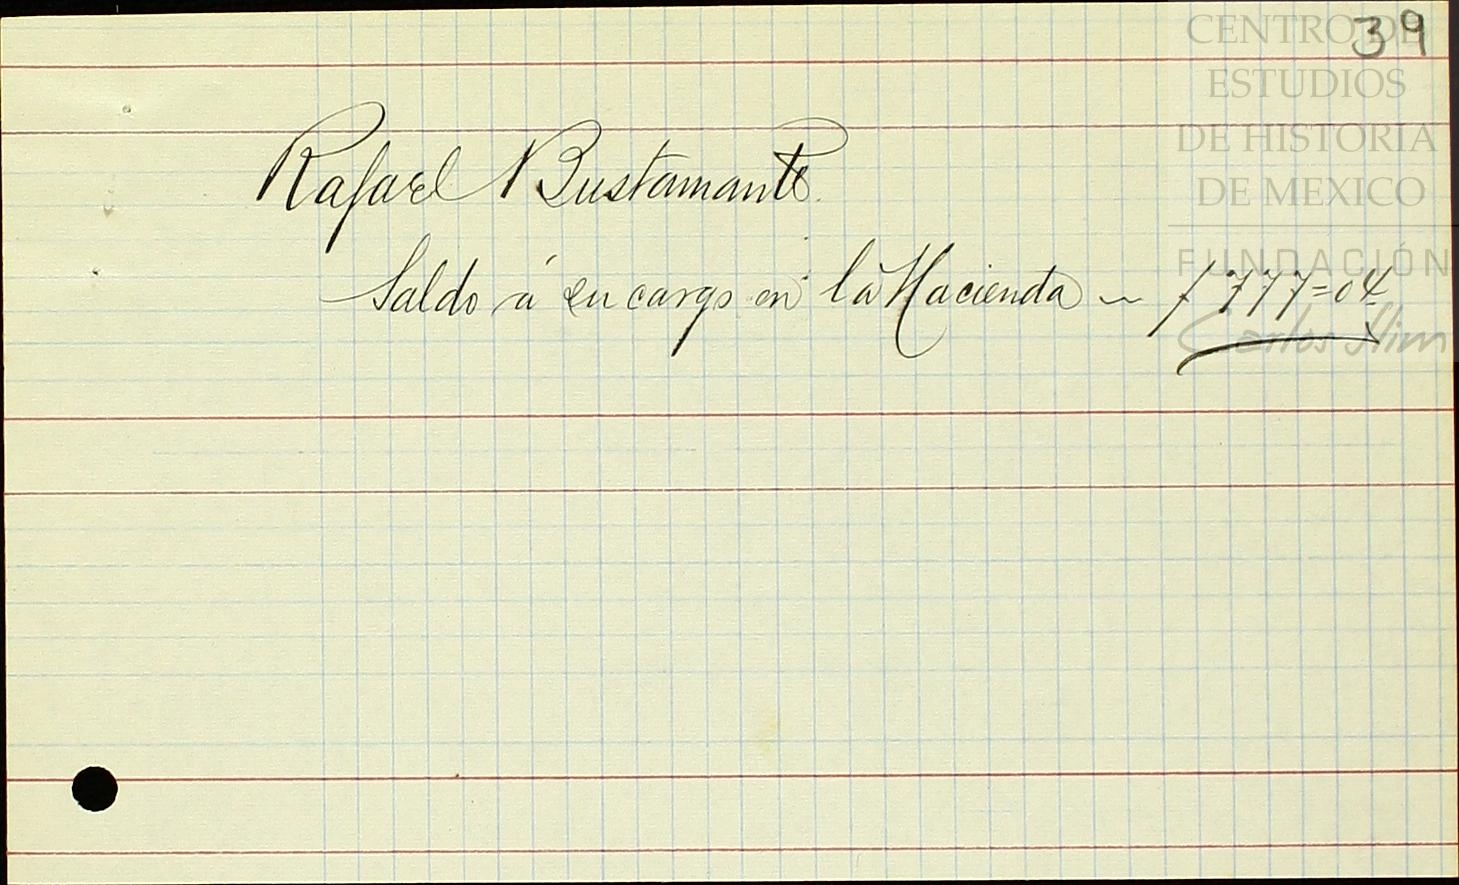 39
CENTRO DE
ESTUDIOS
DE HISTORIA
DE MEXICO
FUNDACIÓN
Carlos Slim
Rafael Bustamante
Saldo á su cargo en la Hacienda ~ $777=04